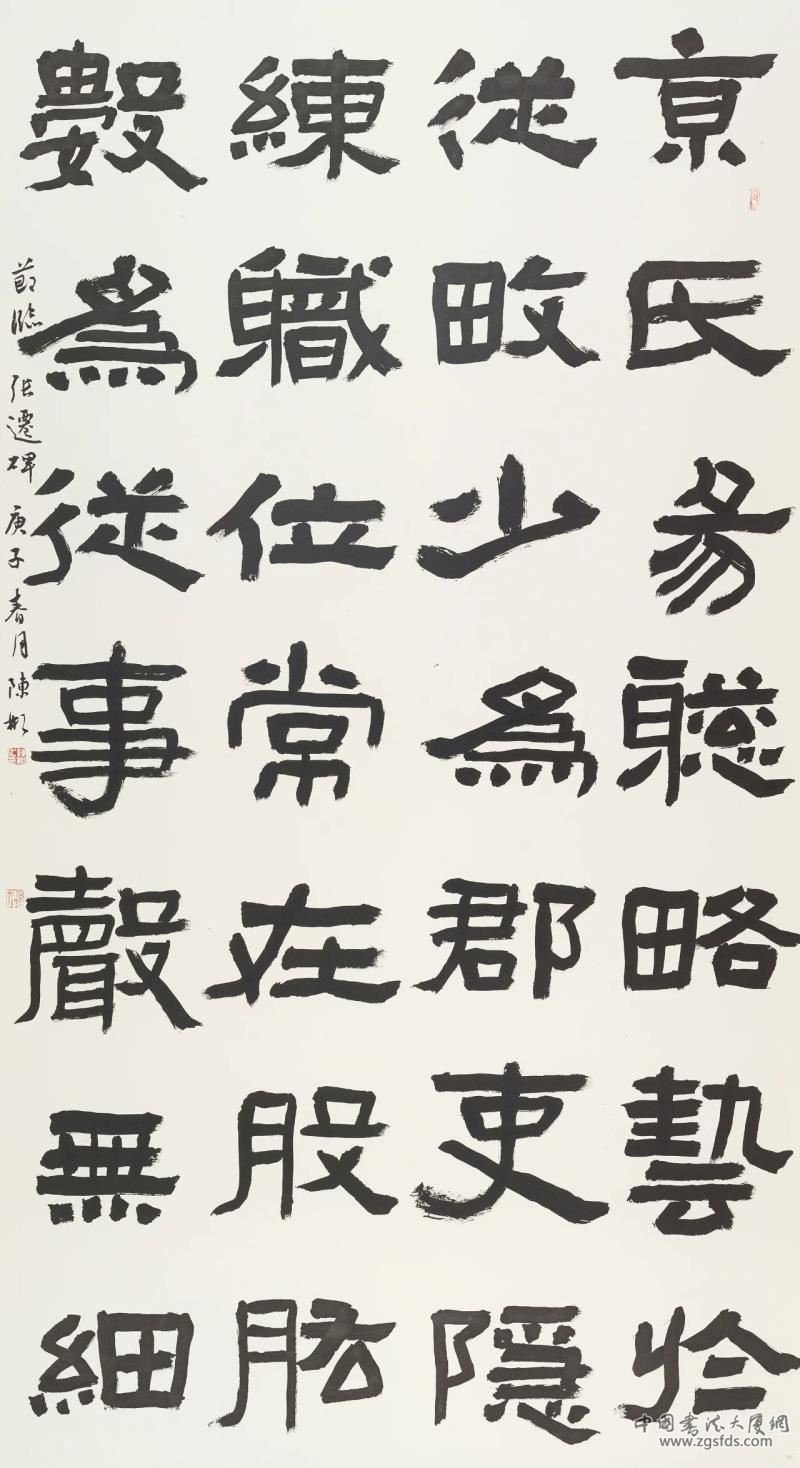 京氏易聰略藝於
從畋少為郡吏隱
練職位常在股肱
數為從事聲無細
節臨 张遷碑 庚子春月 陳彬
中国书法大厦網
www.zgsfds.com